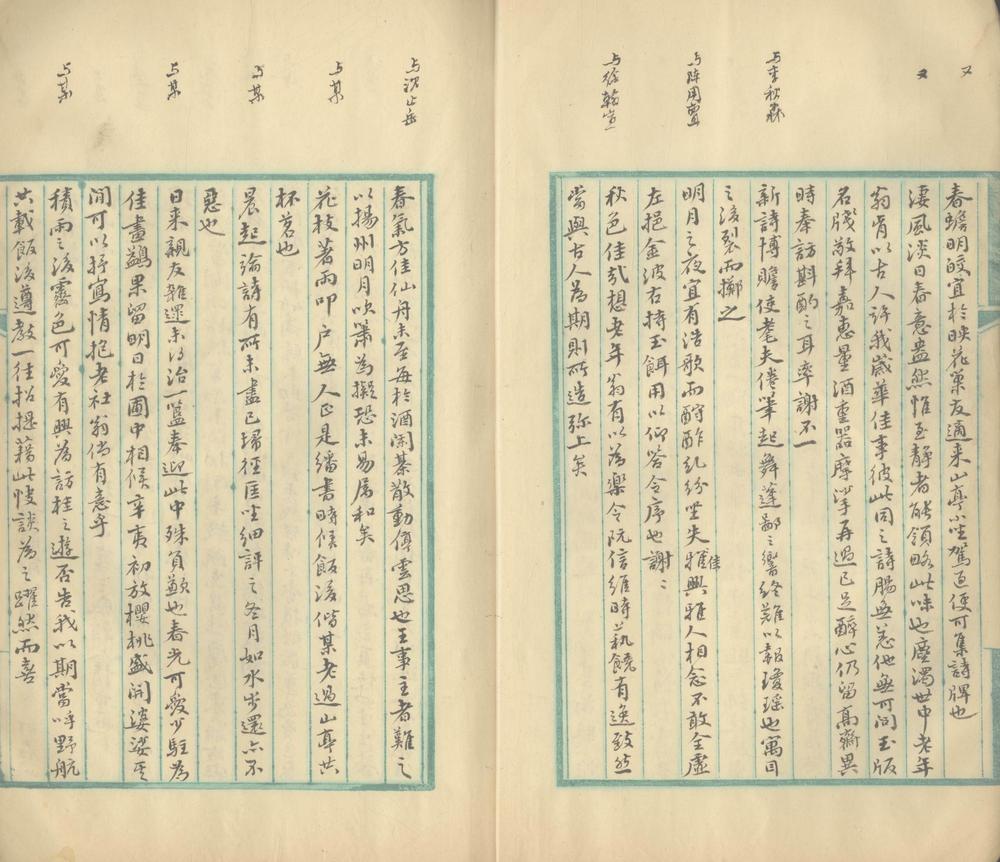 又
春蟾明皎宜於映花策友過来山亭小坐駕臨便可集詩牌也
又
淒風淡日春意盎然惟至靜者能領略此味也塵濁世中老年
翁肯以古人許我歲華佳事彼此同之詩腸無恙他無可問玉版
名牋敬拜嘉惠量酒重器摩挲再過已足醉心仍留高齋異
時奉訪斟酌之耳率謝不一
与李秋森
新詩博贍使耄夫倦筆起舞蓬鄙之響終難以報瓊瑤也寓目
之後裂而擲之
与陈用亶
明月之夜宜有浩歌而酬酢乱紛坐失雅佳興雅人相念不敢全虛
左挹金波右持玉餌用以仰答令序也謝〻
与徐翰宣
秋色佳哉想老年翁有以為樂令阮信維時蓺饒有逸致然
當與古人為期則所造弥上矣
与沈止岳
春氣方佳仙舟未至每於酒闌棊散動停雲思也王事主者難之
以揚州明月吹簫為擬恐未易屬和矣
与某
花枝著雨叩户無人正是繙書時候飯後偕某老過山亭共
杯茗也
与某
晨起論詩有所未盡已掃徑匡坐細評之冬月如水步還亦不
惡也
与某
日来親友雜遝未得治一籃奉迎此中殊負歉也春光可愛少駐為
佳畫鷁果留明日於圃中相候辛夷初放櫻桃盛開婆娑其
間可以抒寫情抱老社翁尚有意乎
与某
積雨之後霽色可愛有興為訪桂之遊否告我以期當呼野航
共載飯後遵教一往招提藉此快談為之躍然而喜